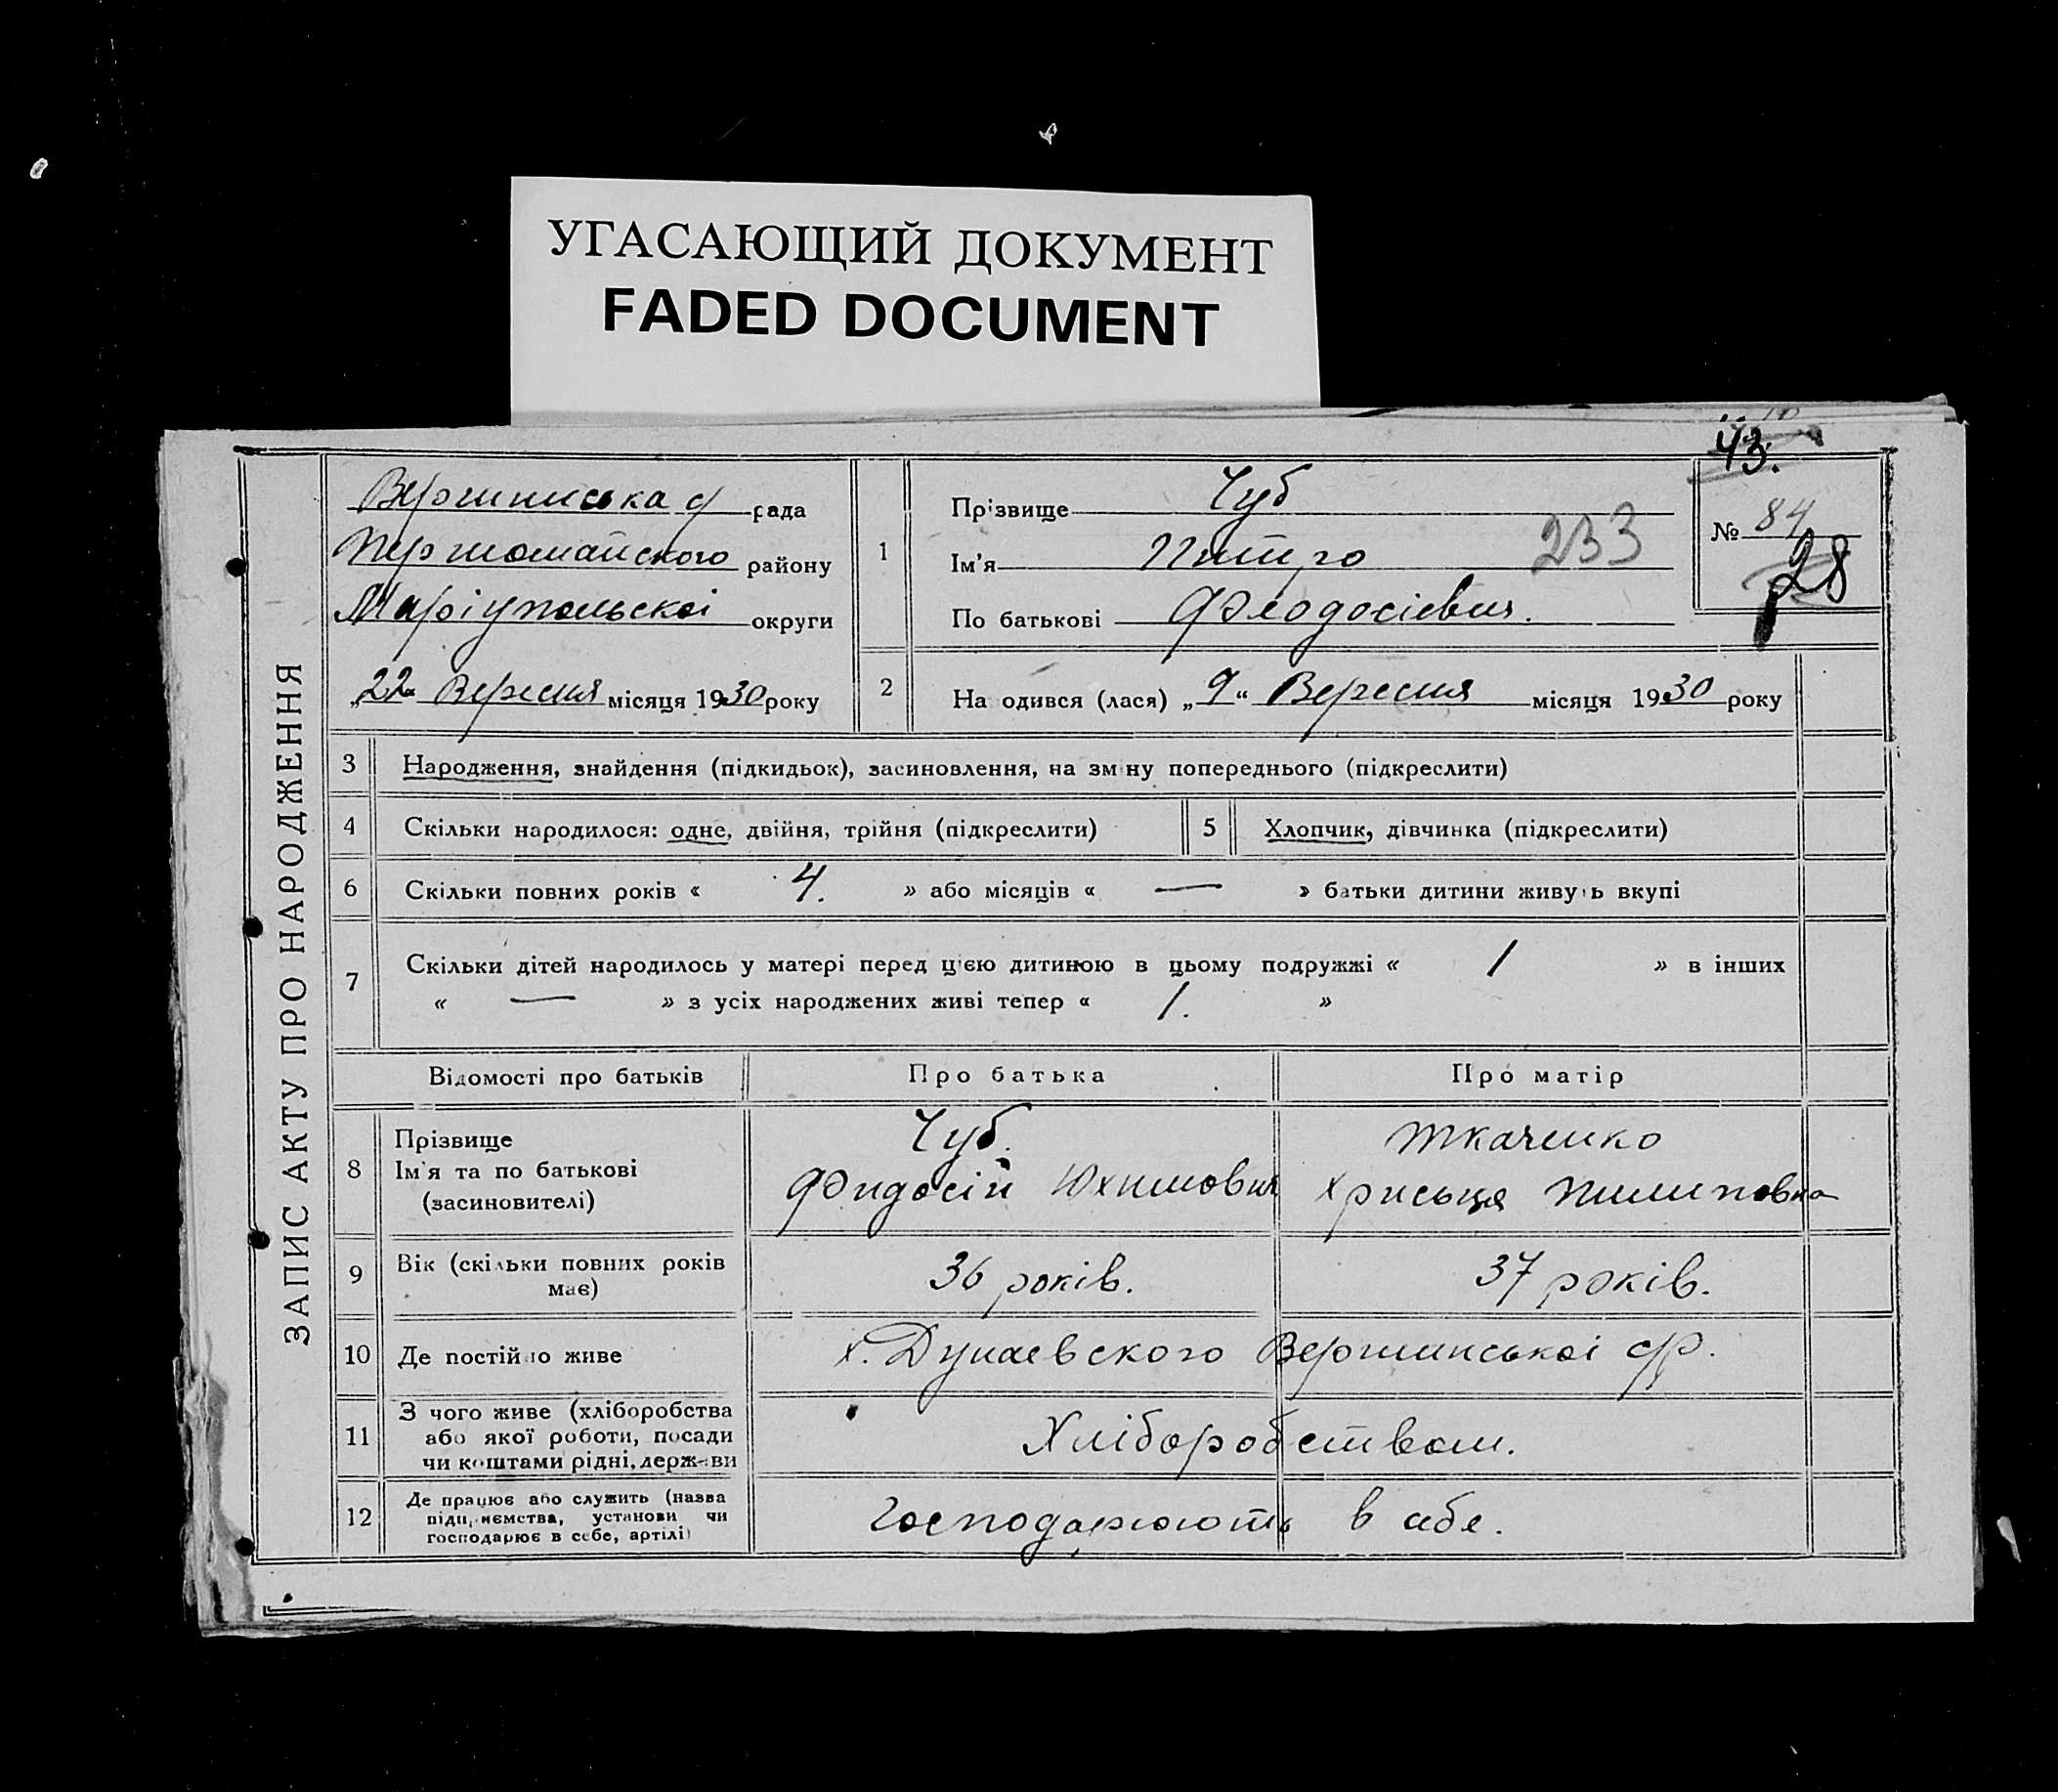 УГАСАЮЩИЙ ДОКУМЕНТ
FADED DOCUMENT
43.
ЗАПИС АКТУ ПРО НАРОДЖЕННЯ
Вершинська с/ рада
Першомайского району
Маріупольскоі округи
„22" Вересня місяця 1930 року
1
Прізвище Чуб
Ім'я Питро 233
По батькові Феодосієвич.
№ 84
28
2 На одився (лася) „9“ Вересня місяця 1930 року
3 Народження, знайдення (підкидьок), засиновлення, на зміну попереднього (підкреслити)
4 Скільки народилося: одне, двійня, трійня (підкреслити) 5 Хлопчик, дівчинка (підкреслити)
6 Скільки повних років « 4. » або місяців « — » батьки дитини живуть вкупі
7 Скільки дітей народилось у матері перед цією дитиною в цьому подружжі « 1 » в інших
« — » з усіх народжених живі тепер « 1. »
Відомості про батьків Про батька Про матір
8 Прізвище Чуб. Ткаченко
Ім'я та по батькові Фидосій Юхимович Хрисьця Пилиповна
(засиновителі)
9 Вік (скільки повних років має) 36 років. 37 років.
10 Де постійно живе х. Дунаевского Вершинськоі с/р.
11 З чого живе (хліборобства
або якої роботи, посади Хліборобством.
чи коштами рідні, держави
12 Де працює або служить (назва
підприємства, установи чи Господарюють в себе.
господарює в себе, артілі)